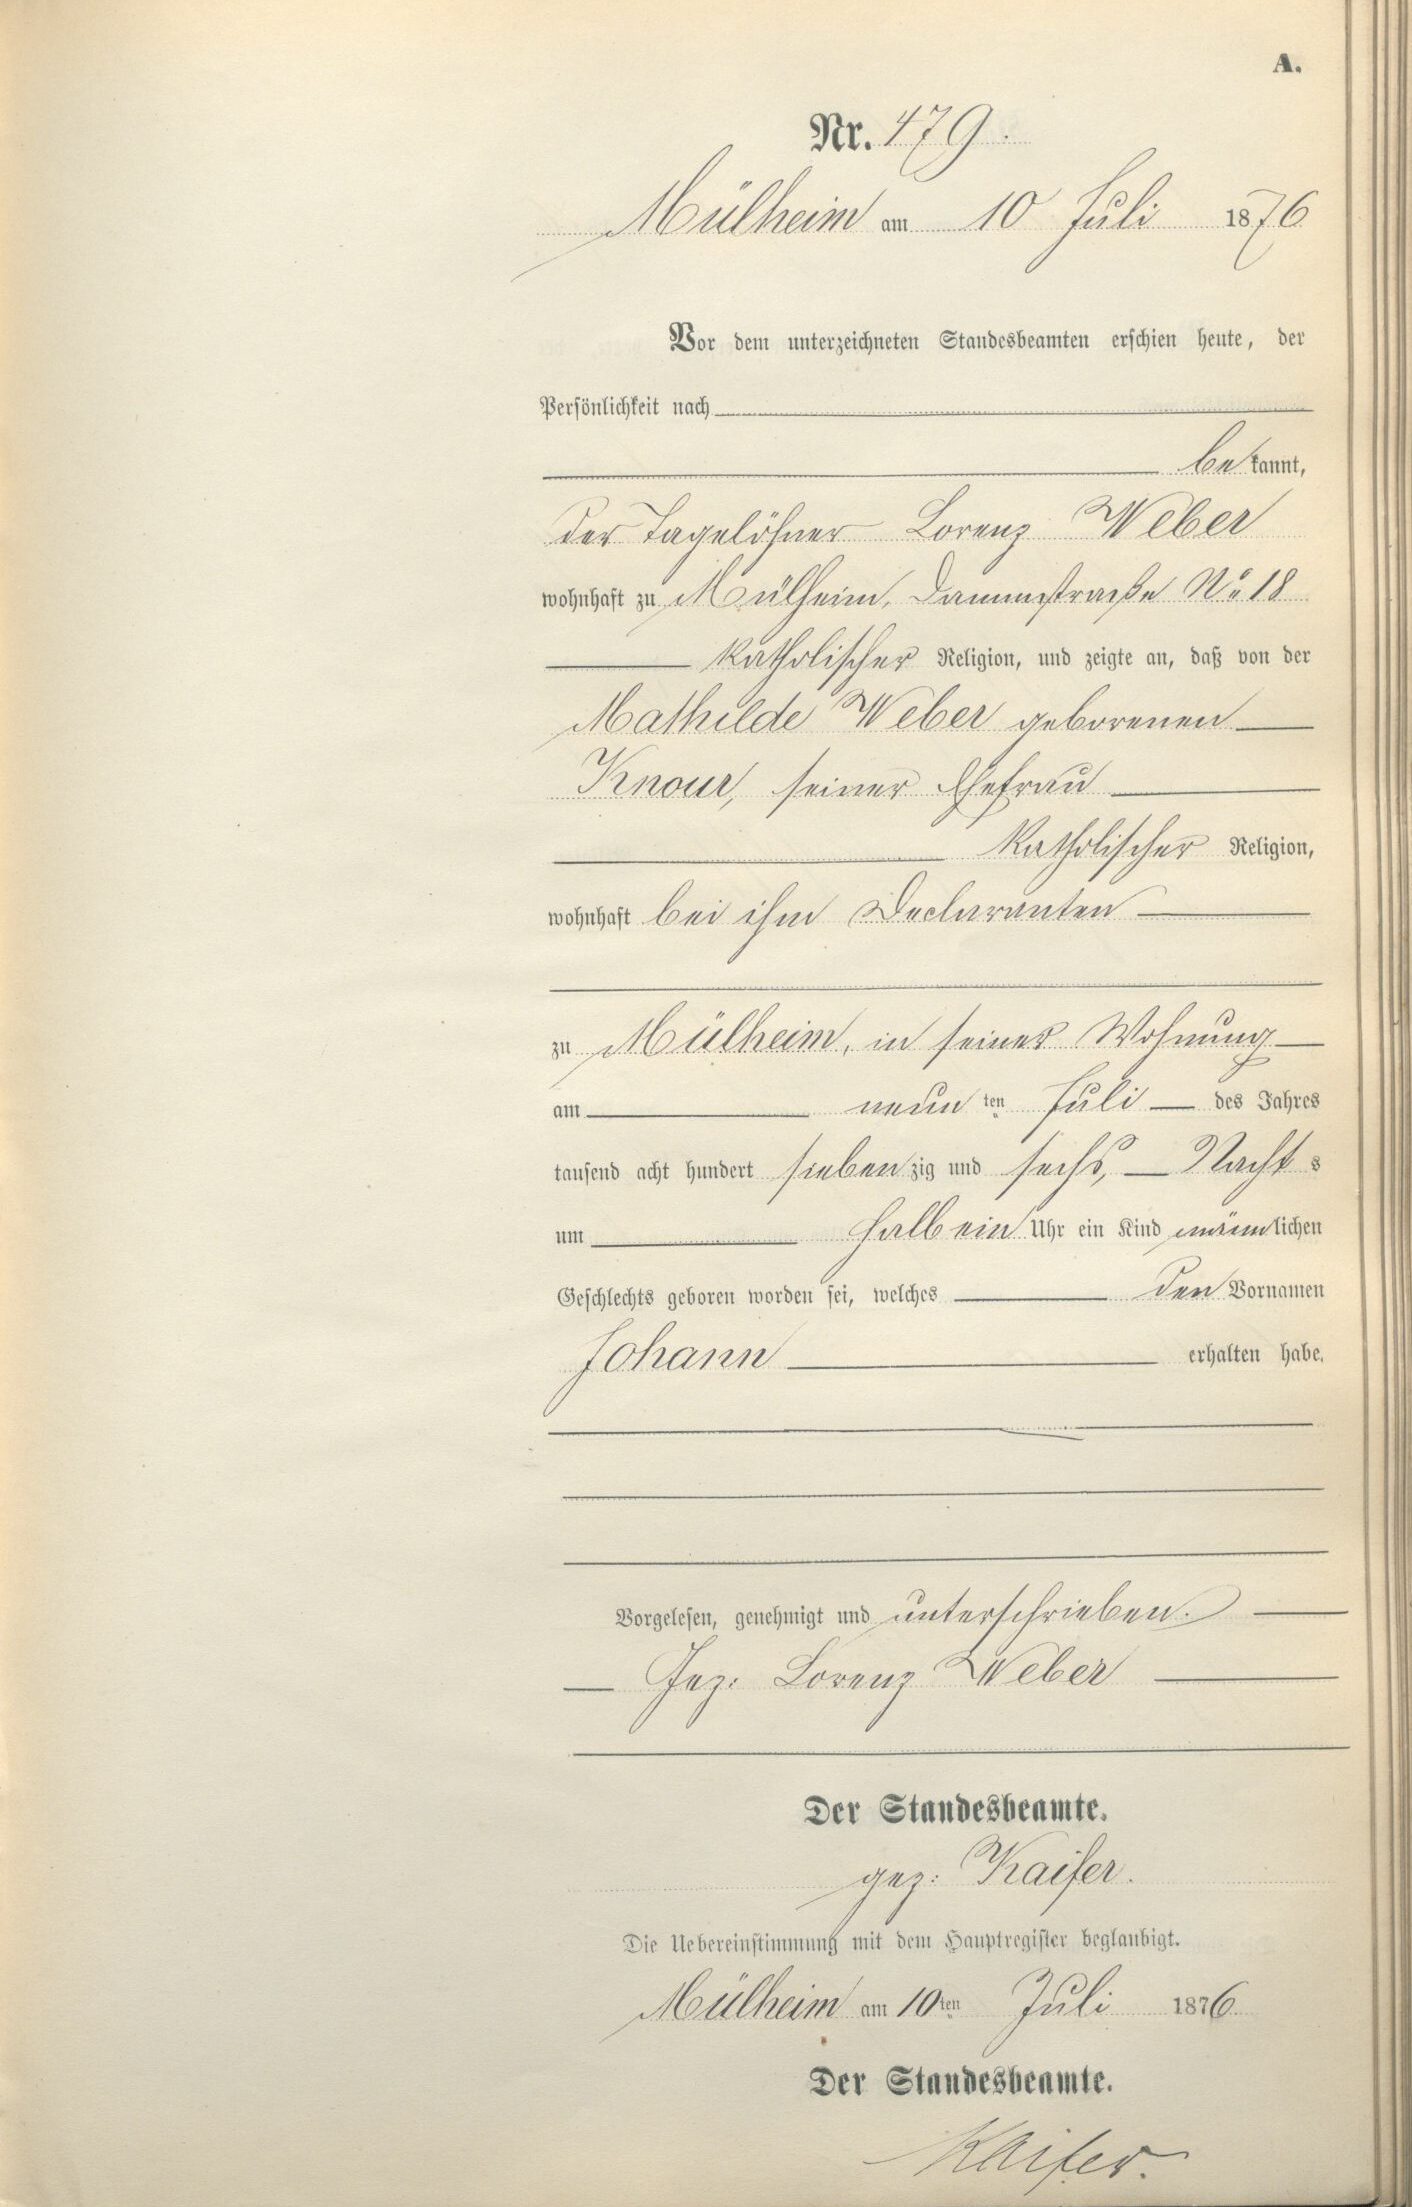 A.
Nr. 479.
Mülheim am 10 Juli 1876
Vor dem unterzeichneten Standesbeamten erschien heute, der
Persönlichkeit nach
bekannt,
der Tagelöhner Lorenz Weber
wohnhaft zu Mülheim, Dammstraße No 18
katholischer Religion, und zeigte an, daß von der
Mathilde Weber geborenen
Knour, seiner Ehefrau
katholischer Religion,
wohnhaft bei ihm Declaranten
zu Mülheim, in seiner Wohnung
am neunten Juli des Jahres
tausend acht hundert siebenzig und sechs, Nachts
um halb ein Uhr ein Kind männlichen
Geschlechts geboren worden sei, welches den Vornamen
Johann erhalten habe.
Vorgelesen, genehmigt und unterschrieben.
Gez: Lorenz Weber
Der Standesbeamte.
gez: Kaifer.
Die Uebereinstimmung mit dem Hauptregister beglaubigt.
Mülheim am 10ten Juli 1876
Der Standesbeamte.
Kaifer.